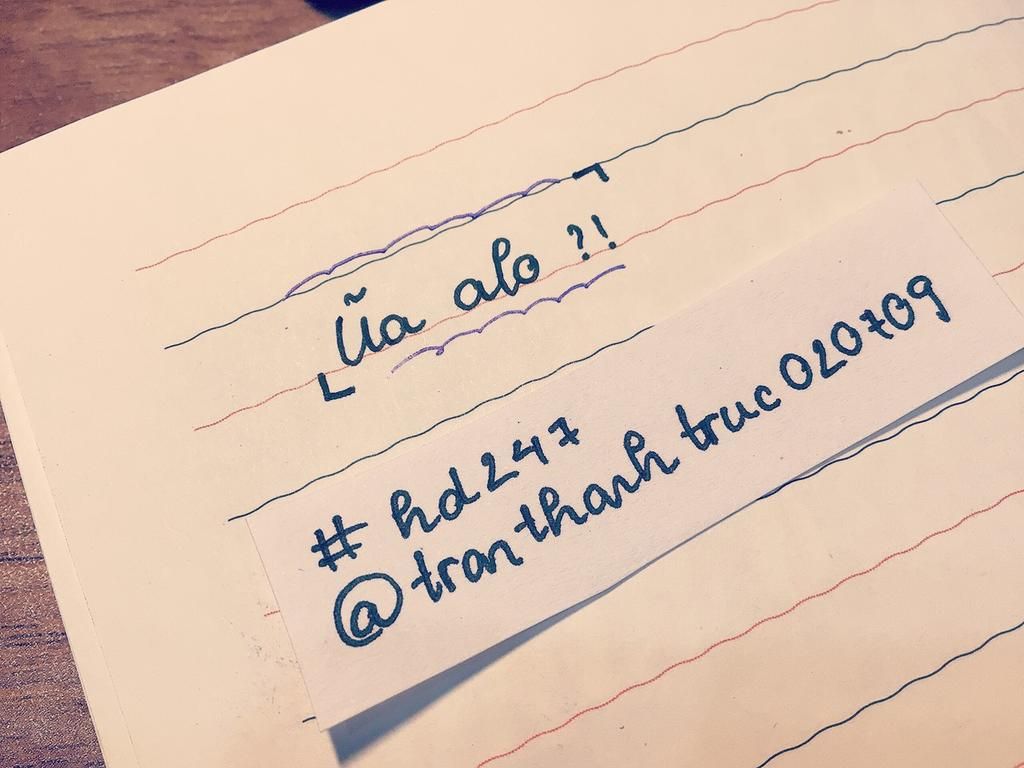 Ũa alo ?!
# hd247
@tranthanhtruc020709